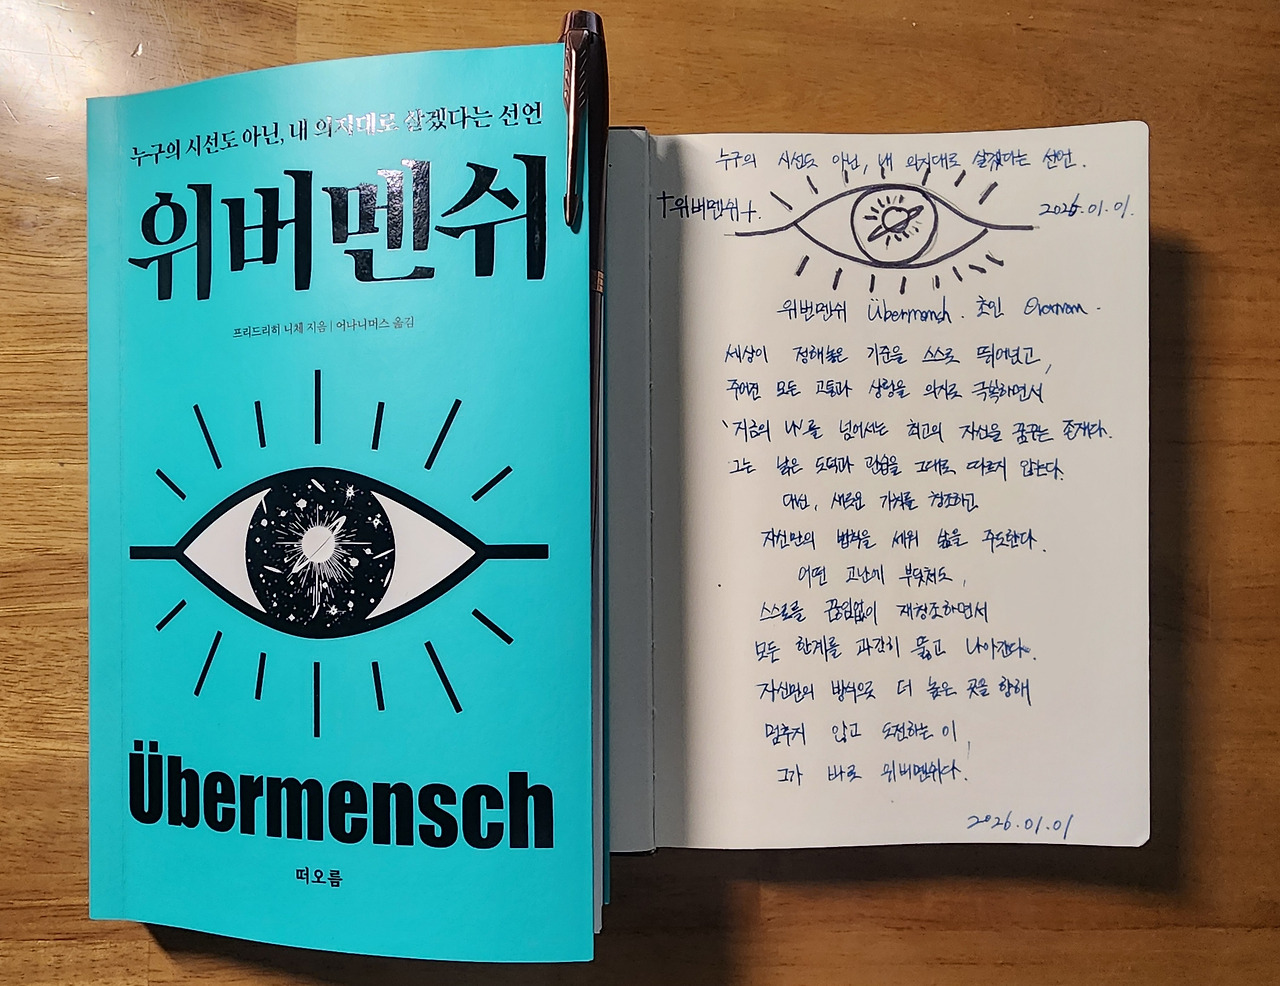 누구의 시선도 아닌, 내 의지대로 살겠다는 선언
위버멘쉬
프리드리히 니체 지음 | 어나니머스 옮김
Übermensch
떠오름
누구의 시선도 아닌, 내 의지대로 살겠다는 선언.
†위버멘쉬†.
2026.01.01.
위번멘쉬 Übermensch. 초인
세상이 정해놓은 기준을 스스로 뛰어넘고,
주어진 모든 고통과 상황을 의지로 극복하면서
'지금의 나'를 넘어서는 최고의 자신을 꿈꾸는 존재다.
그는 낡은 도덕과 관습을 그대로 따르지 않는다.
대신, 새로운 가치를 창조하고
자신만의 법칙을 세워 삶을 주도한다.
어떤 고난에 부딪쳐도,
스스로를 끊임없이 재창조하면서
모든 한계를 과감히 뚫고 나아간다.
자신만의 방식으로 더 높은 곳을 향해
멈추지 않고 도전하는 이,
그가 바로 위버멘쉬다.
2026.01.01